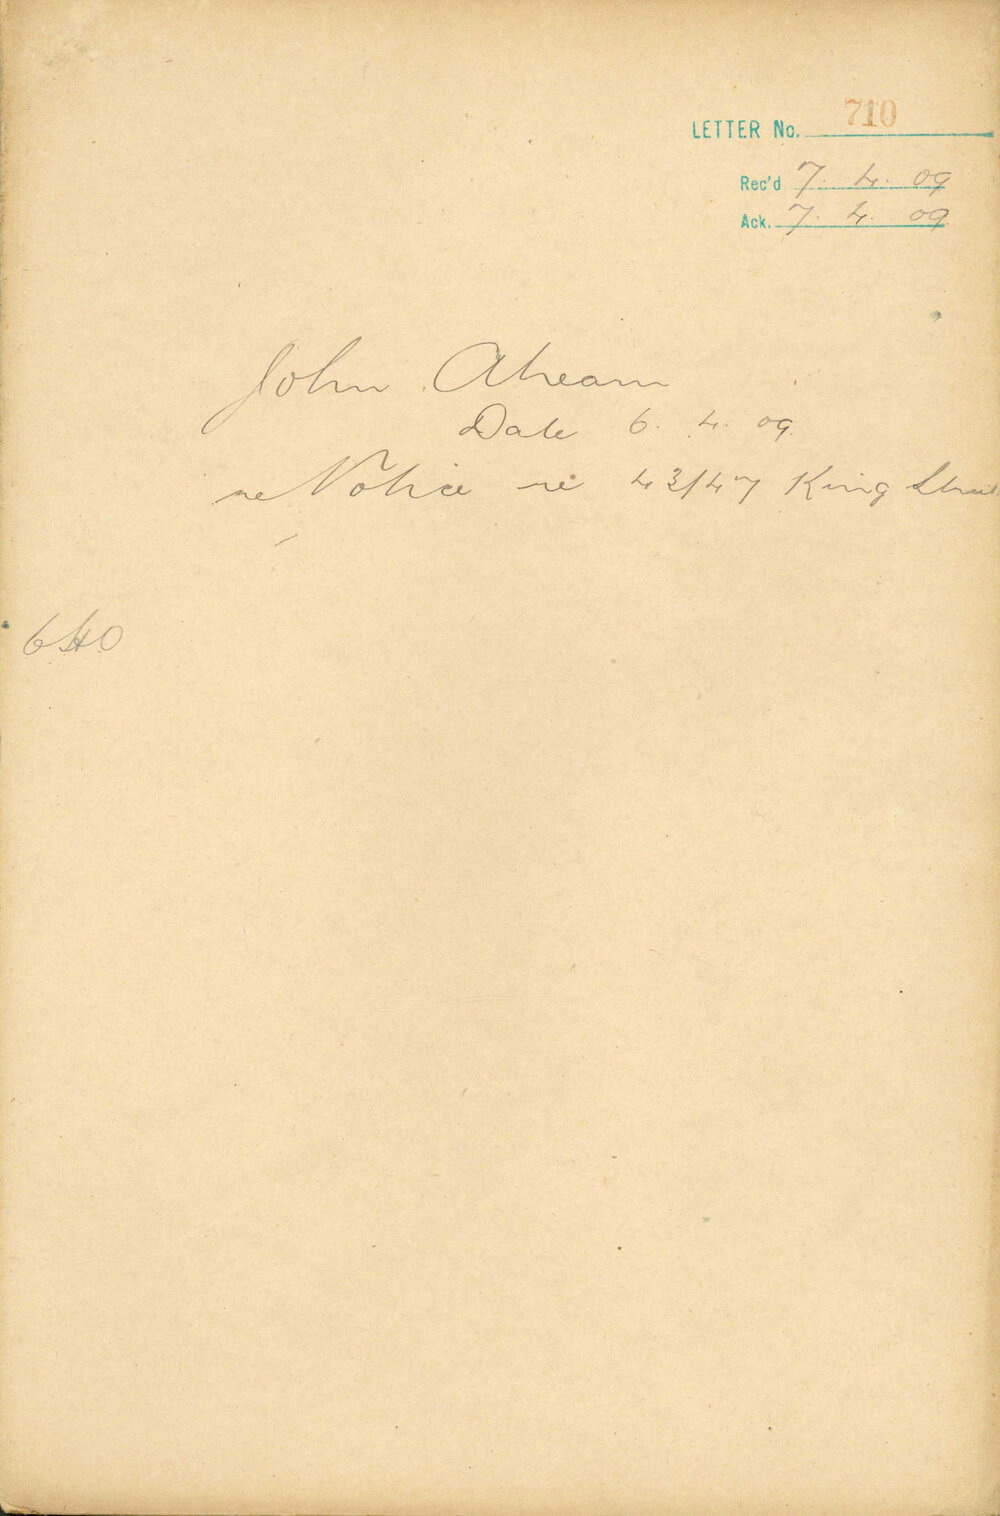 LETTER No. 710
Rec'd 7. 4. 09
Ack. 7. 4. 09
John Ahearn
Date 6. 4. 09.
re Notice re 43/47 King Street